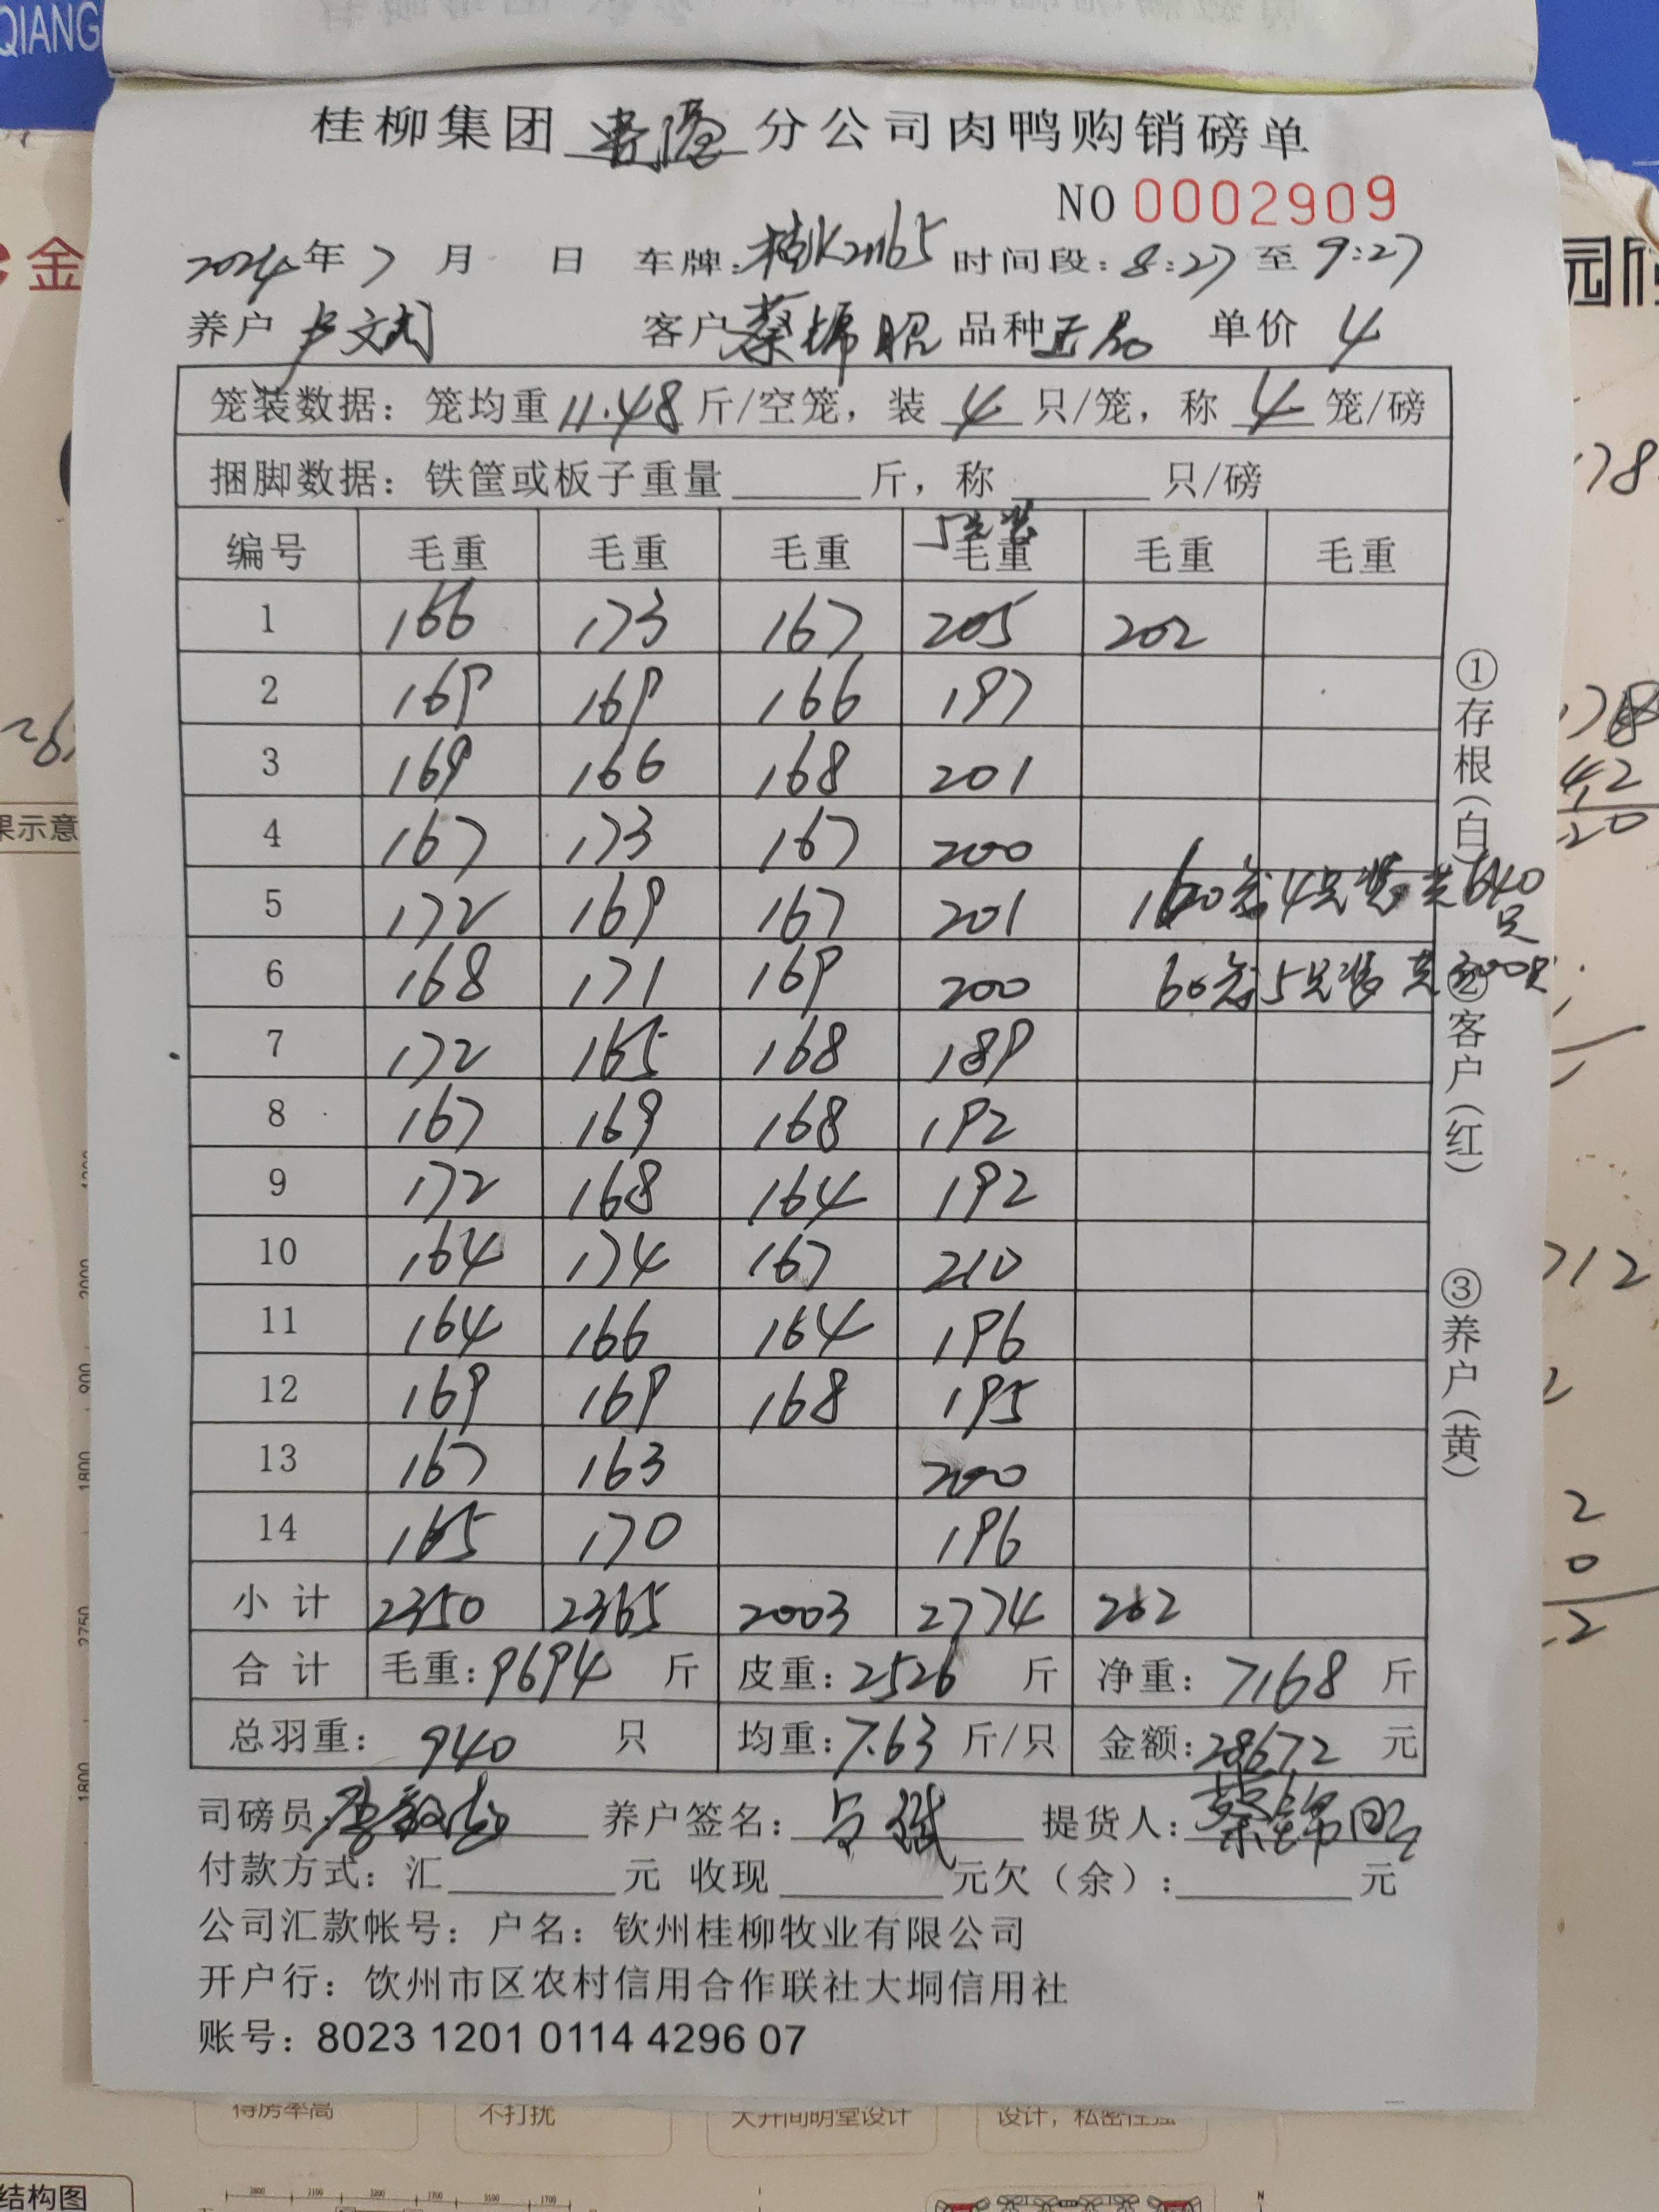 QIANG
桂柳集团 贵港 分公司肉鸭购销磅单
NO 0002909
2024年7月 日 车牌: 时间段: 8:27至9:27
养户 卢文 客户 蔡锦昭 品种 正品 单价 4
笼装数据: 笼均重 11.48 斤/空笼, 装 4 只/笼, 称 4 笼/磅
捆脚数据: 铁筐或板子重量 斤, 称 只/磅
5只装
编号 毛重 毛重 毛重 毛重 毛重 毛重
1 166 173 167 205 202
2 169 169 166 197
3 169 166 168 201
4 167 173 167 200
5 172 169 167 201
6 168 171 169 200
7 172 165 168 189
8 167 169 168 192
9 172 168 164 192
10 164 174 167 210
11 164 166 164 196
12 169 169 168 195
13 167 163 200
14 165 170 196
160笼4只装共640只
60笼5只装共300只
小计 2350 2365 2003 2774 202
合计 毛重: 9694 斤 皮重: 2526 斤 净重: 7168 斤
总羽重: 940 只 均重: 7.63 斤/只 金额: 28672 元
司磅员: 养户签名: 提货人: 蔡锦昭
付款方式: 汇 元 收现 元欠(余): 元
公司汇款帐号: 户名: 钦州桂柳牧业有限公司
开户行: 饮州市区农村信用合作联社大垌信用社
账号: 8023 1201 0114 4296 07
①存根(白)
②客户(红)
③养户(黄)
金
园
果示意
78
42
20
712
得房率高
不打扰
大开间明堂设计
结构图